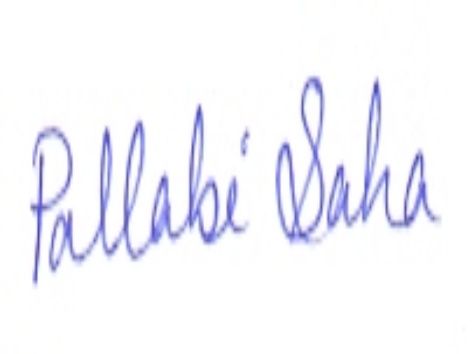 Pallabi Saha